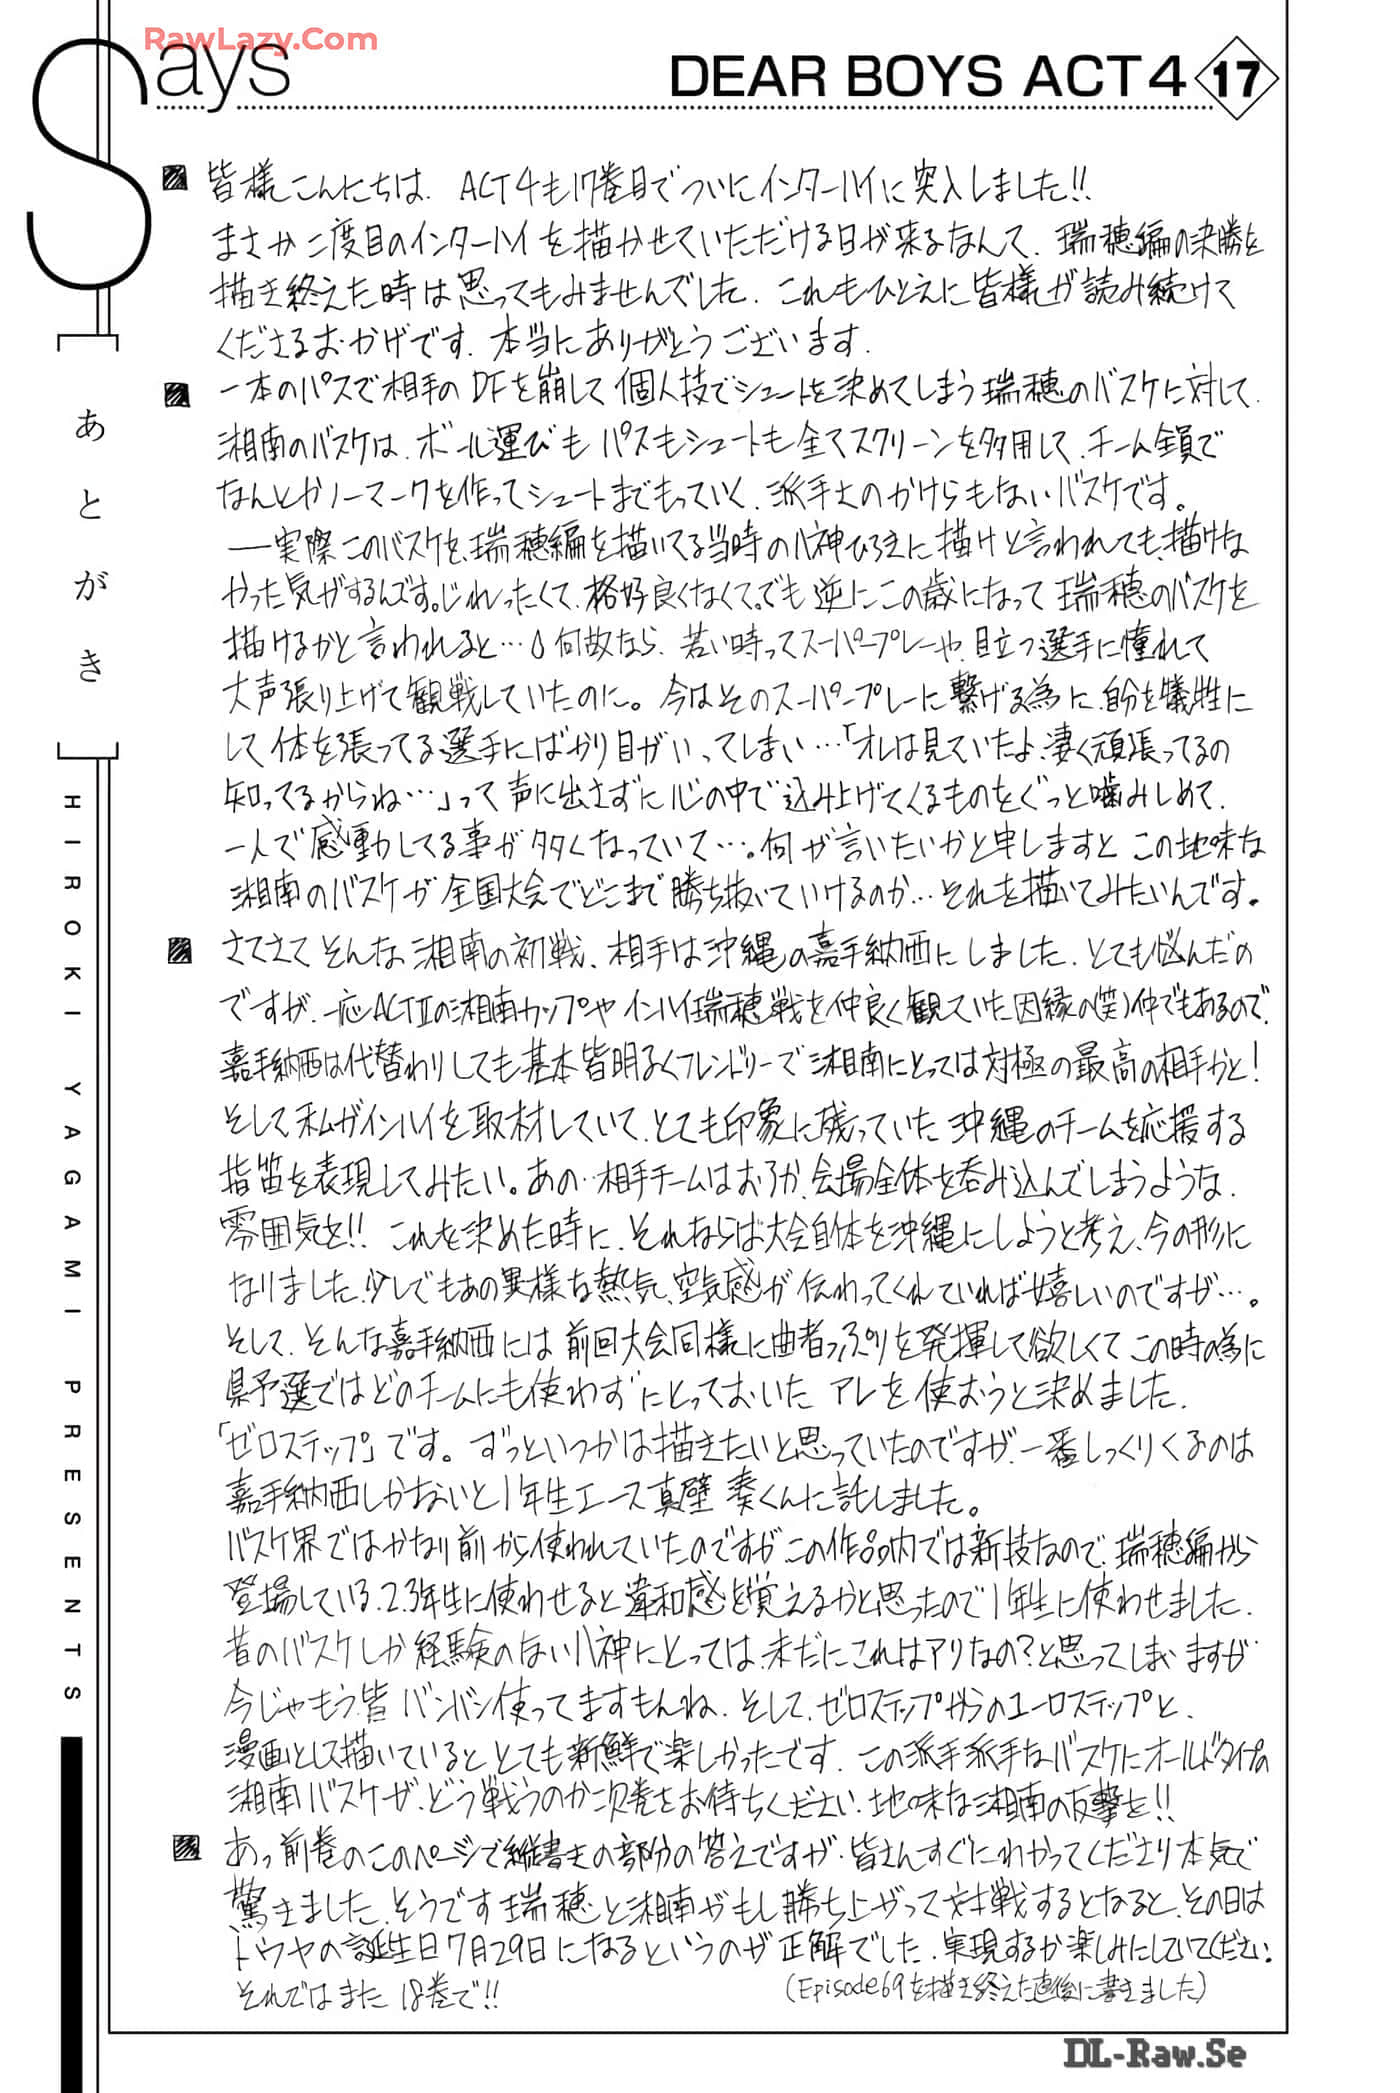 RawLazy.Com
Says
DEAR BOYS ACT4 17
[あとがき]
HIROKI YAGAMI PRESENTS
皆様こんにちは、ACT4も17巻目でついにインターハイに突入しました!!
まさか二度目のインターハイを描かせていただける日が来るなんて、瑞穂編の決勝を
描き終えた時は思ってもみませんでした、これもひとえに皆様が読み続けて
くださるおかげです、本当にありがとうございます。
一本のパスで相手のDFを崩して個人技でシュートを決めてしまう瑞穂のバスケに対して、
湘南のバスケは、ボール運びもパスもシュートも全てスクリーンを多用して、チーム全員で
なんとかノーマークを作ってシュートまでもっていく、派手さのかけらもないバスケです。
―実際このバスケを、瑞穂編を描いてる当時の八神ひろきに描けと言われても、描けな
かった気がするんです。じれったくて、格好良くなくて。でも逆にこの歳になって瑞穂のバスケを
描けるかと言われると…何故なら、若い時ってスーパープレーや、目立つ選手に憧れて
大声張り上げて観戦していたのに。今はそのスーパープレーに繋げる為に、自分を犠牲に
して体を張ってる選手にばかり目がいってしまい…「オレは見ていたよ、凄く頑張ってるの
知ってるからね…」って声に出さずに心の中で込み上げてくるものをぐっと噛みしめて、
一人で感動してる事が多くなっていて…。何が言いたいかと申しますと、この地味な
湘南のバスケが全国大会でどこまで勝ち抜いていけるのか…それを描いてみたいんです。
さてさてそんな湘南の初戦、相手は沖縄の嘉手納西にしました、とても悩んだの
ですが、一応ACTⅡの湘南カップやインハイ瑞穂戦を仲良く観ていた因縁の(笑)仲でもあるので、
嘉手納西は代替わりしても基本皆明るくフレンドリーで湘南にとっては対極の最高の相手かと!
そして私がインハイを取材していて、とても印象に残っていた沖縄のチームを応援する
指笛を表現してみたい。あの…相手チームはおろか、会場全体を呑み込んでしまうような、
雰囲気を!! これを決めた時に、それならば大会自体を沖縄にしようと考え、今の形に
なりました、少しでもあの異様な熱気、空気感が伝わってくれていれば嬉しいのですが…。
そして、そんな嘉手納西には前回大会同様に曲者っぷりを発揮して欲しくてこの時の為に
県予選ではどのチームにも使わずにとっておいたアレを使おうと決めました、
「ゼロステップ」です。ずっといつかは描きたいと思っていたのですが、一番しっくりくるのは
嘉手納西しかないと1年生エース真壁奏くんに託しました。
バスケ界ではかなり前から使われていたのですがこの作品内では新技なので、瑞穂編から
登場している、2.3年生に使わせると違和感を覚えるかと思ったので1年生に使わせました、
昔のバスケしか経験のない八神にとっては、未だにこれはアリなの?と思ってしまいますが
今じゃもう皆バンバン使ってますもんね、そして、ゼロステップからのユーロステップと、
漫画として描いているととても新鮮で楽しかったです、この派手派手なバスケにオールドタイプの
湘南バスケが、どう戦うのか次巻をお待ちください、地味な湘南の反撃を!!
あっ前巻のこのページで縦書きの部分の答えですが、皆さんすぐにわかってくださり本気で
驚きました、そうです瑞穂と湘南がもし勝ち上がって対戦するとなると、その日は
トウヤの誕生日7月29日になるというのが正解でした、実現するか楽しみにしていてください。
それではまた18巻で!!
(Episode69を描き終えた直後に書きました)
DL-Raw.Se